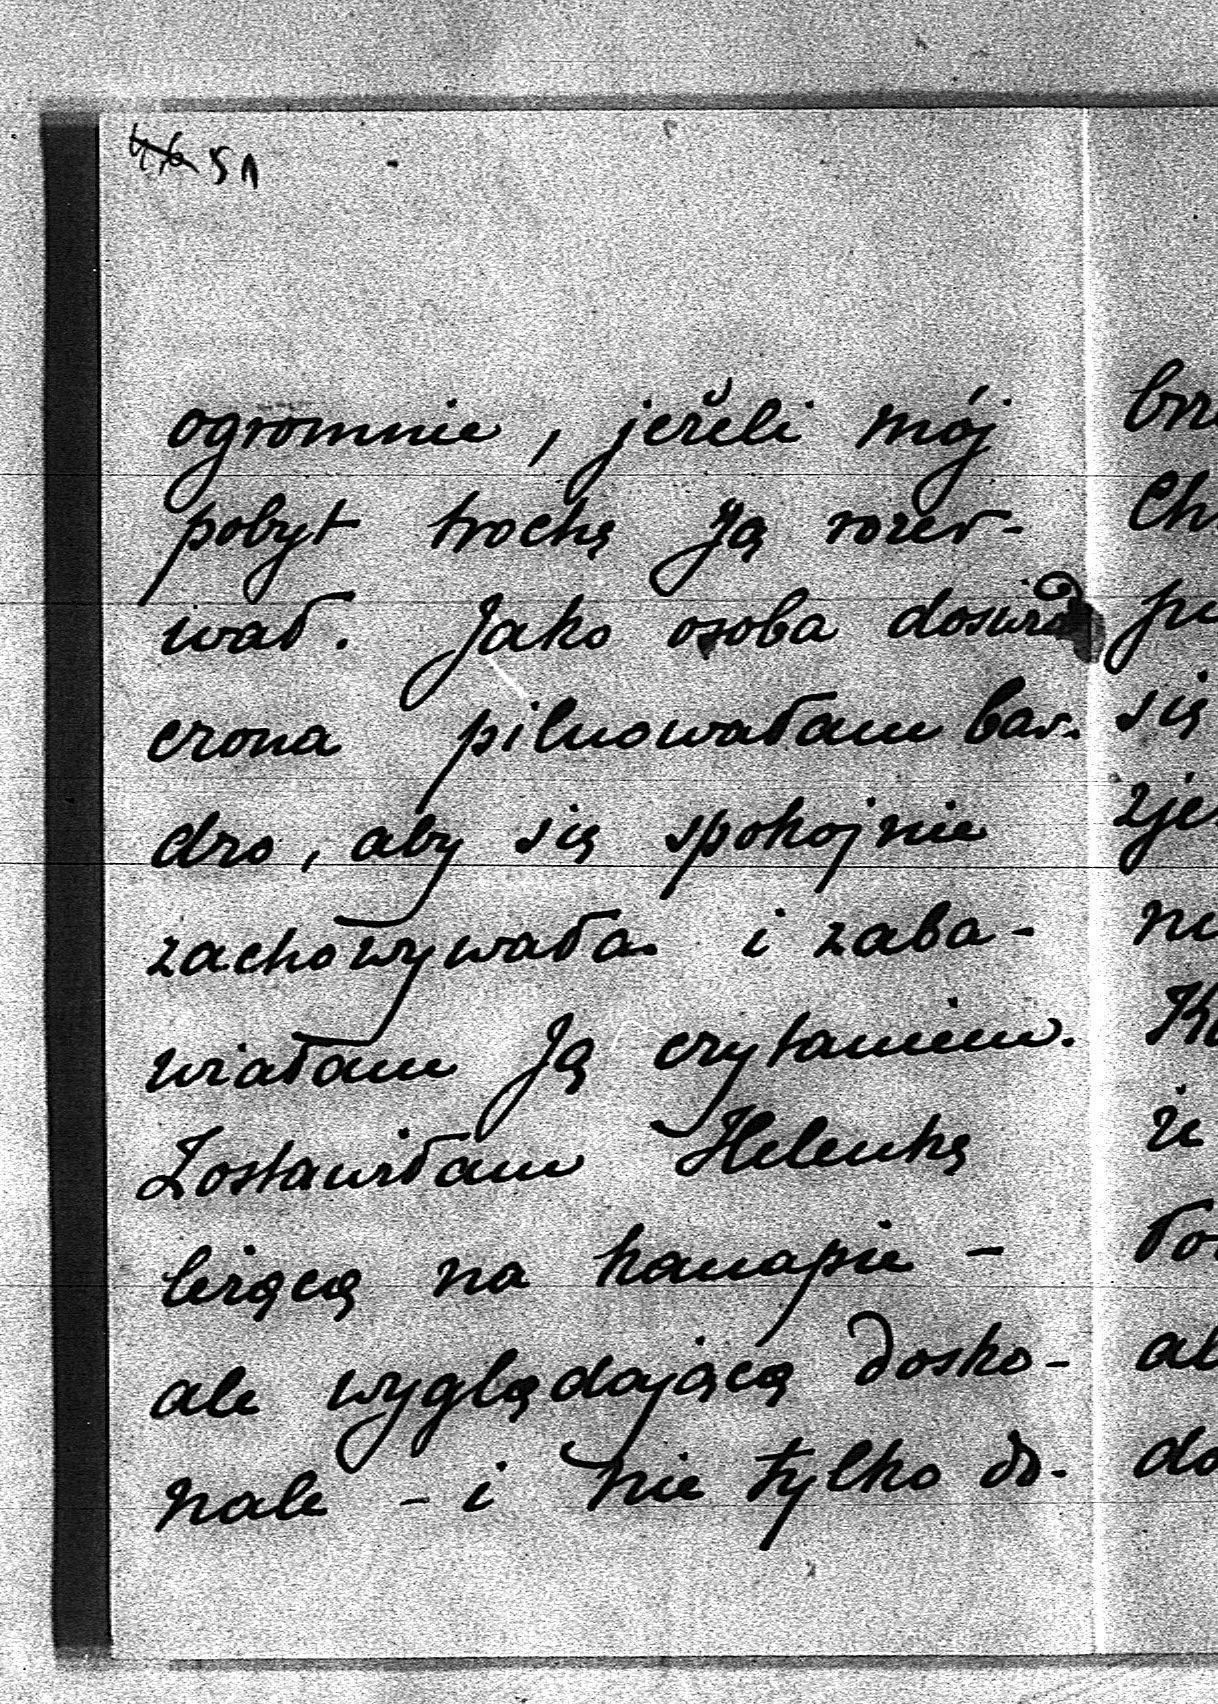 46 51
ogromnie, jeżeli mój
pobyt trochę Ją rozer-
wał. Jako osoba doświad
czona pilnowałam bar-
dzo, aby się spokojnie
zachowywała i zaba-
wiałam Ją czytaniem.
Zostawiłam Helenkę
leżącą na kanapie -
ale wyglądającą dosko-
nale - i nie tylko do-
się